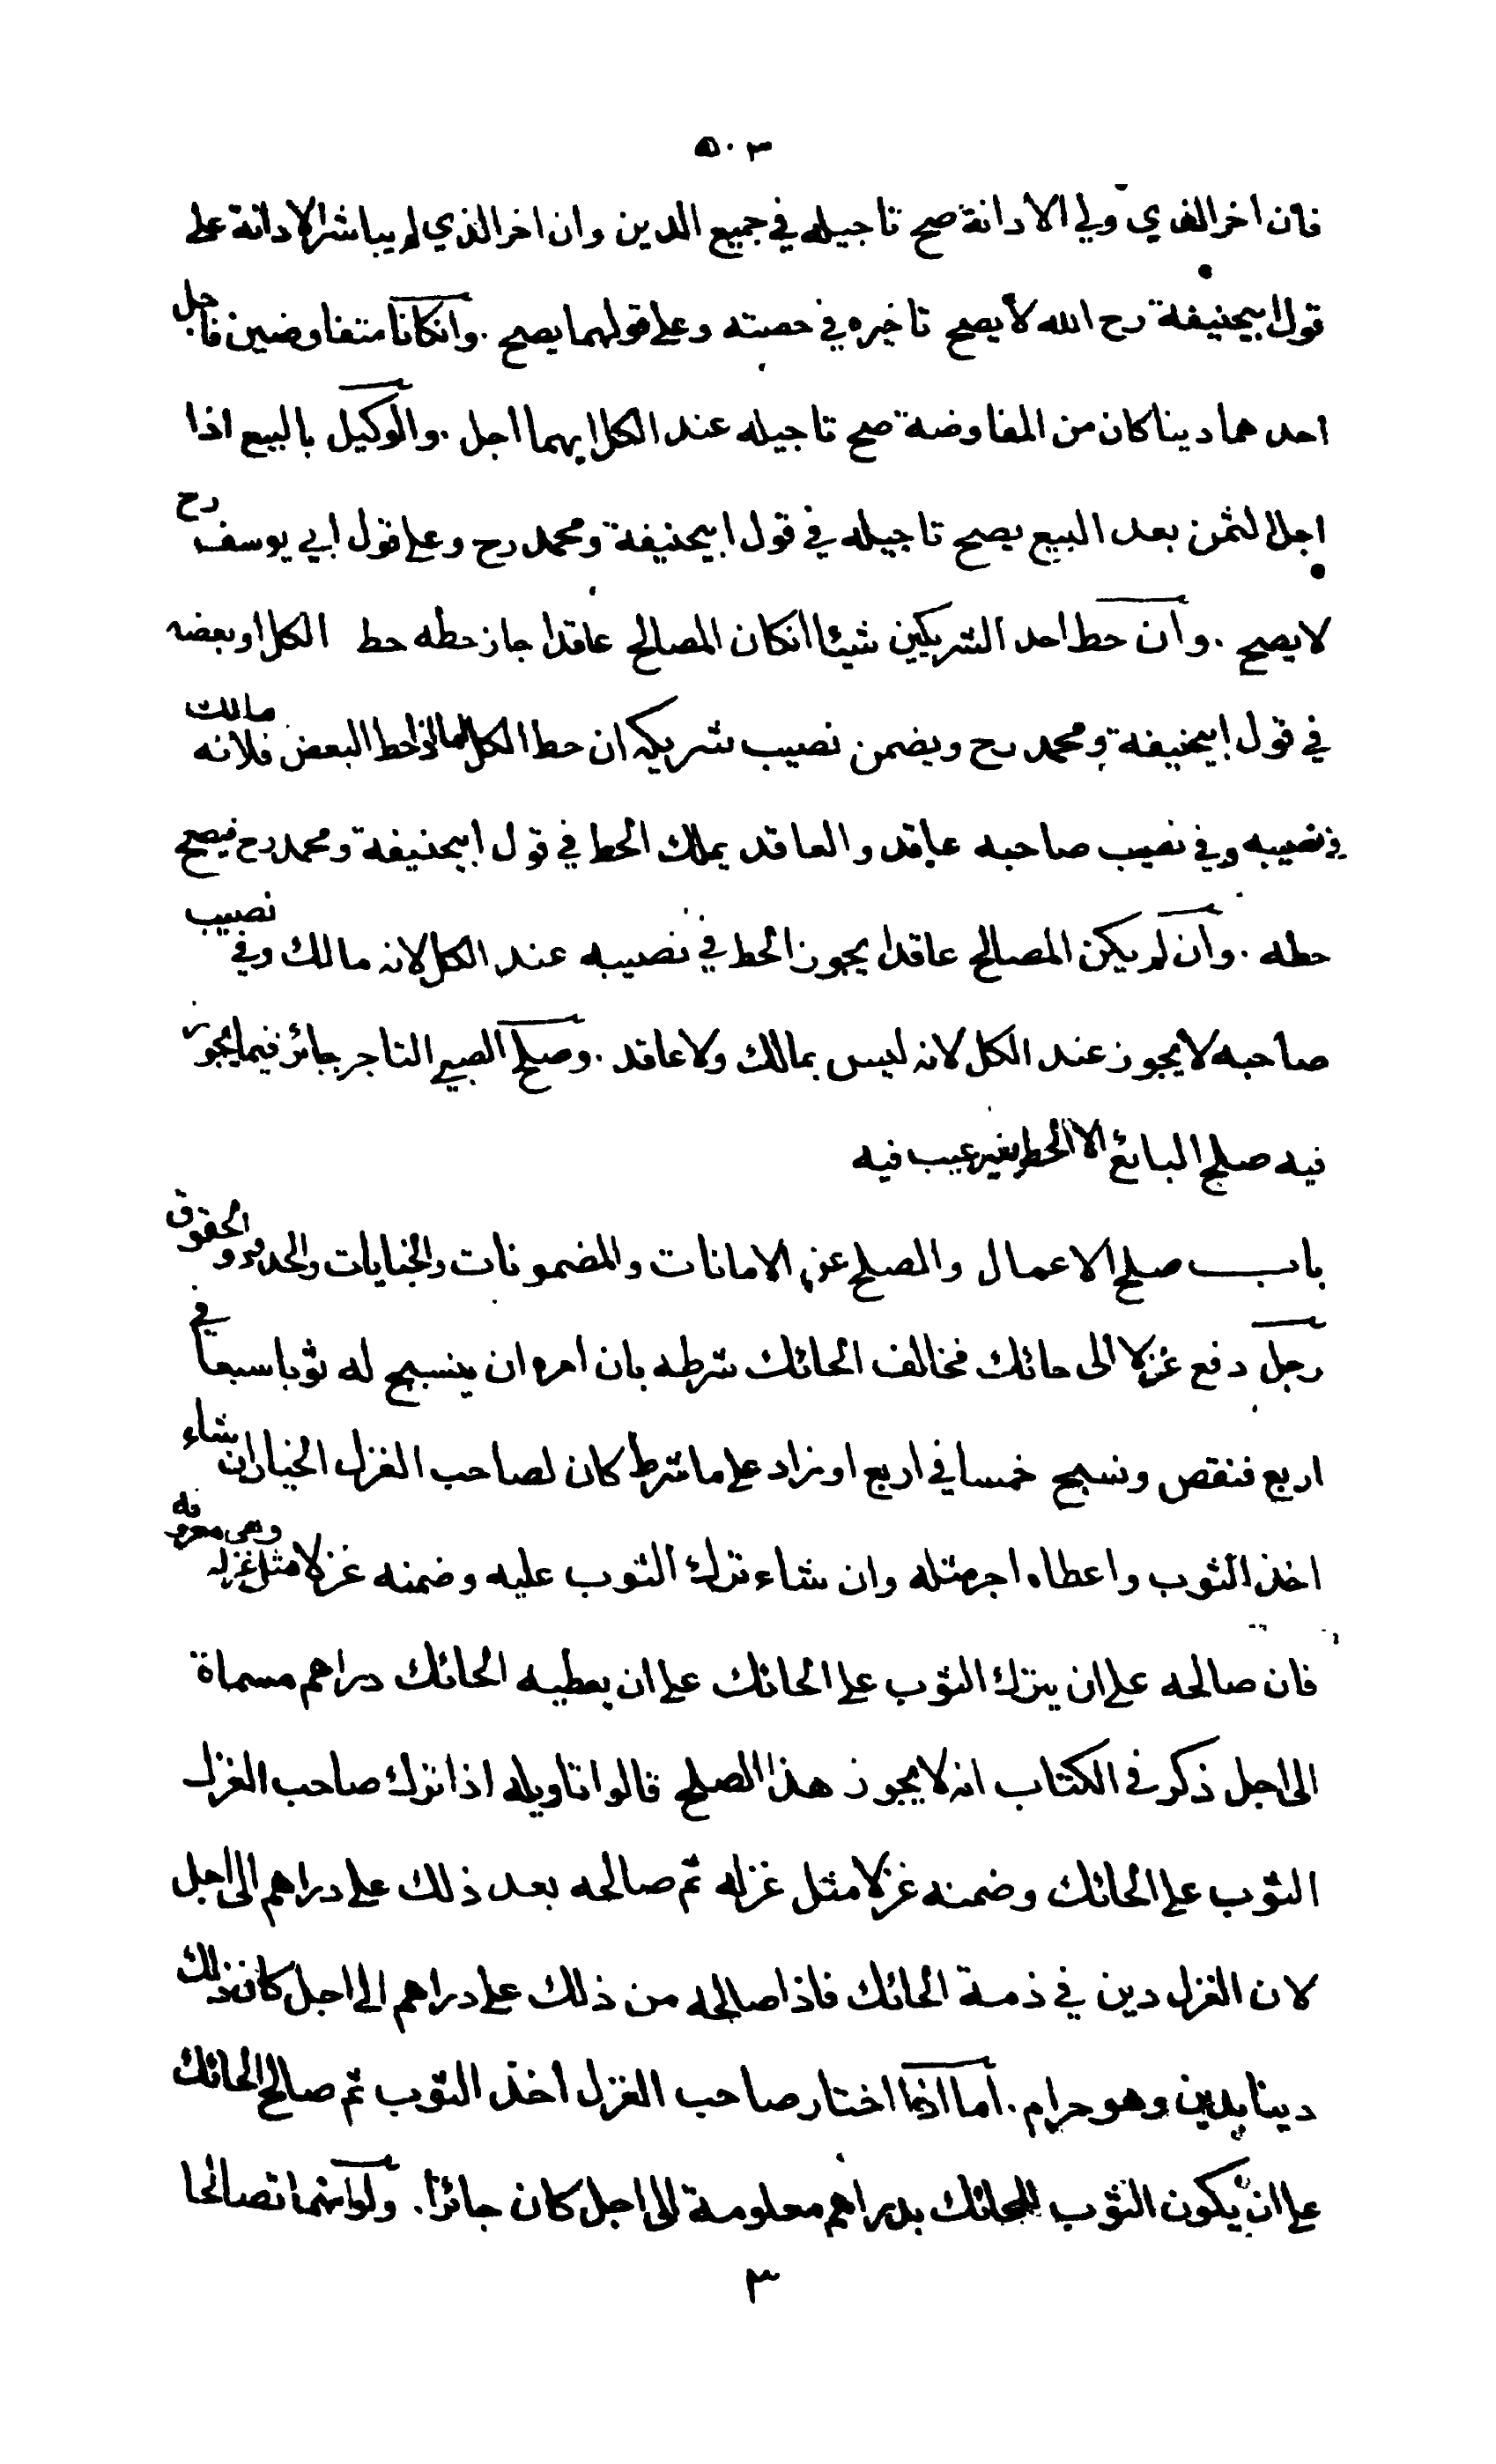 ٥٠٣
فان اخر الذي ولي الادانة صح تاجيله في جميع الدين وان اخر الذي لم يباشر الادانة على
قول ابيحنيفة رح الله لا يصح تاخيره في حصته وعلى قولهما يصح . وانكانا متفاوضين فاجل
احدهما دينا كان من المفاوضة صح تاجيله عند الكل ايهما اجل . والوكيل بالبيع اذا
اجل الثمن بعد البيع يصح تاجيله في قول ابيحنيفة ومحمد رح وعلى قول ابي يوسف رح
لا يصح . وان حط احد الشريكين شيئا انكان المصالح عاقدا جاز حطه حط الكل او بعضه
في قول ابيحنيفة ومحمد رح ويضمن نصيب شريكه ان حط الكل اما اذا حط البعض فلانه مالك
في نصيبه وفي نصيب صاحبه عاقد والعاقد يملك الحط في قول ابيحنيفة ومحمد رح فيصح
حطه . وان لم يكن المصالح عاقدا يجوز الحط في نصيبه عند الكل لانه مالك وفي نصيب
صاحبه لا يجوز عند الكل لانه ليس بمالك ولا عاقد . وصلح الصبي التاجر جائز فيما يجوز
فيه صلح البائع الا الحط بغير عيب فيه
باب صلح الاعمال والصلح عن الامانات والمضمونات والجنايات والحدود والحقوق
رجل دفع غزلا الى حائك فخالف الحائك شرطه بان امره ان ينسج له ثوبا سبعا في
اربع فنقص ونسج خمسا في اربع او زاد على ما شرط كان لصاحب الغزل الخيار ان شاء
اخذ الثوب واعطاه اجر مثله وان شاء ترك الثوب عليه وضمنه غزلا مثل غزله وهى معروفه
فان صالحه على ان يترك الثوب على الحائك على ان يعطيه الحائك دراهم مسماة
الى اجل ذكر في الكتاب انه لا يجوز هذا الصلح قالوا تاويله اذا ترك صاحب الغزل
الثوب على الحائك وضمنه غزلا مثل غزله ثم صالحه بعد ذلك على دراهم الى اجل
لان الغزل دين في ذمة الحائك فاذا صالحه من ذلك على دراهم الى اجل كان ذلك
دينا بدين وهو حرام . اما اذا اختار صاحب الغزل اخذ الثوب ثم صالح الحائك
على ان يكون الثوب للحائك بدراهم معلومة الى اجل كان جائزا . ولو انهما تصالحا
٣